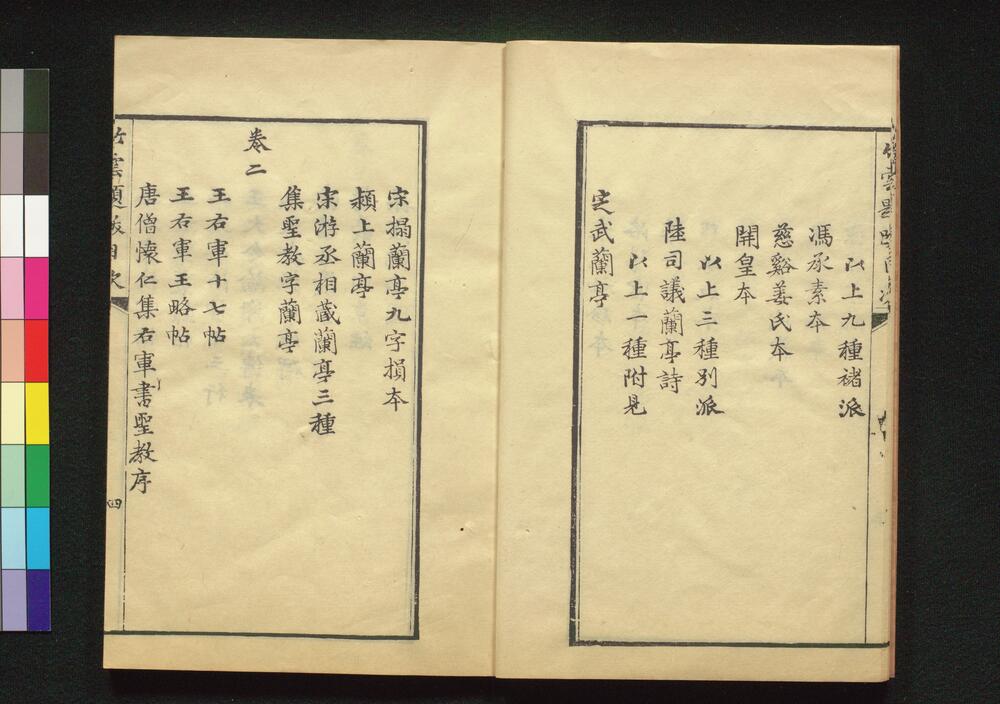 以上九種褚派
馮承素本
慈谿姜氏本
開皇本
以上三種別派
陸司議蘭亭詩
以上一種附見
定武蘭亭
宋搨蘭亭九字損本
潁上蘭亭
宋游丞相藏蘭亭三種
集聖教字蘭亭
卷二
王右軍十七帖
王右軍王略帖
唐僧懷仁集右軍書聖教序
竹雲題跋目次
四